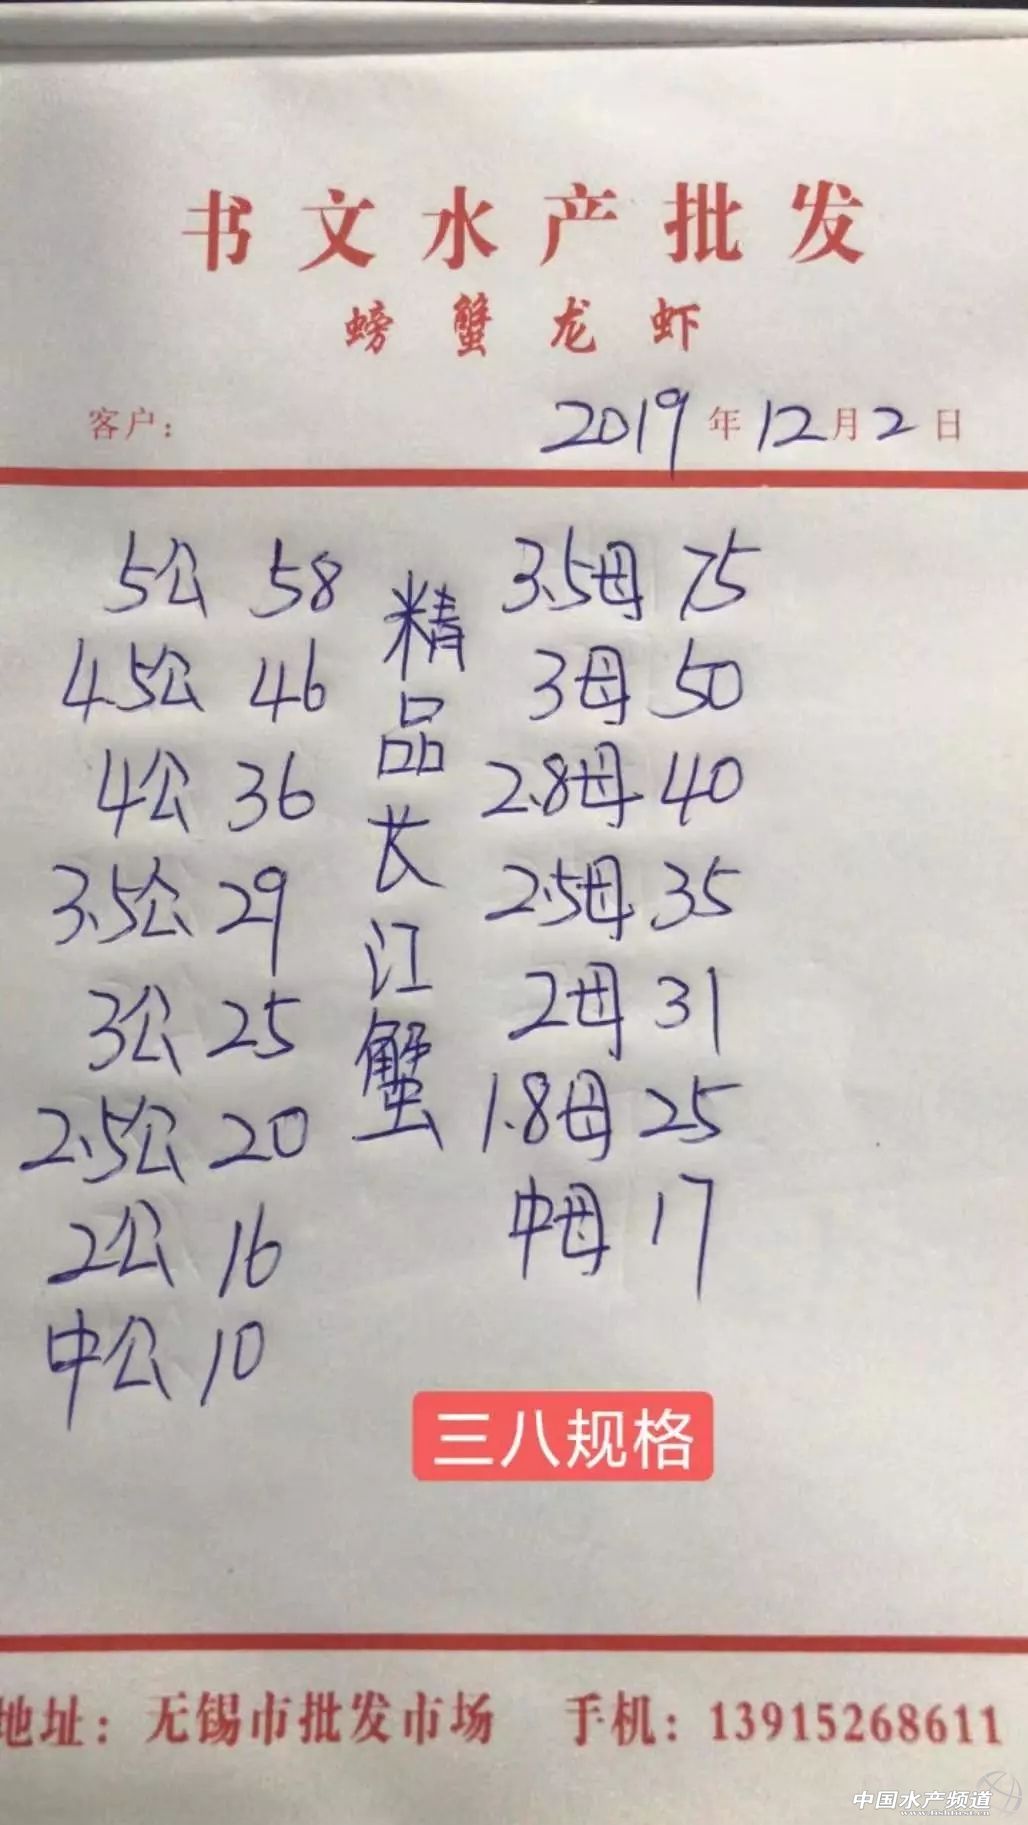 书文水产批发
螃蟹龙虾
客户: 2019年12月2日
5公 58
4.5公 46
4公 36
3.5公 29
3公 25
2.5公 20
2公 16
中公 10
精品长江蟹
3.5母 75
3母 50
2.8母 40
2.5母 35
2母 31
1.8母 25
中母 17
三八规格
地址: 无锡市批发市场 手机: 13915268611
中国水产频道